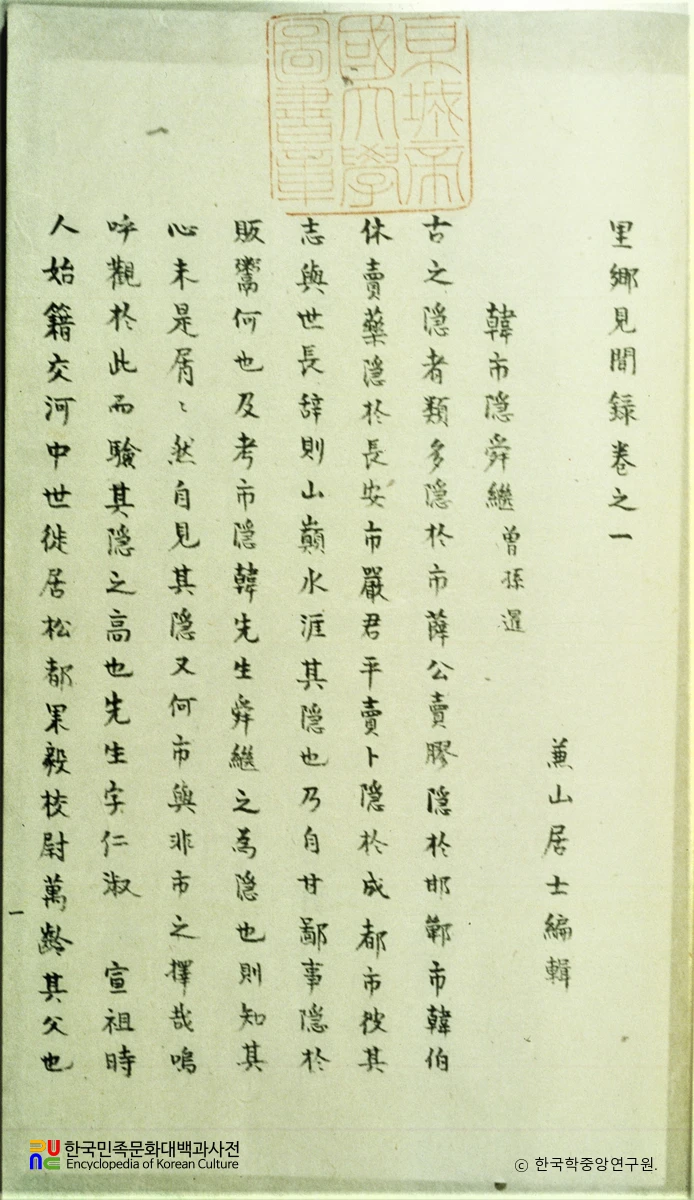 京城帝
國大學
圖書章
里鄉見聞録卷之一
兼山居士編輯
韓市隱舜繼 曾孫暹
古之隱者類多隱於市薛公賣膠隱於邯鄲市韓伯
休賣藥隱於長安市嚴君平賣卜隱於成都市彼其
志與世長辞則山巓水涯其隱也乃自甘鄙事隱於
販鬻何也及考市隱韓先生舜繼之為隱也則知其
心未是屑〻然自見其隱又何市與非市之擇哉嗚
呼觀於此而驗其隱之高也先生字仁淑 宣祖時
人始籍交河中世徙居松都果毅校尉萬齡其父也
一
한국민족문화대백과사전
Encyclopedia of Korean Culture
ⓒ 한국학중앙연구원.